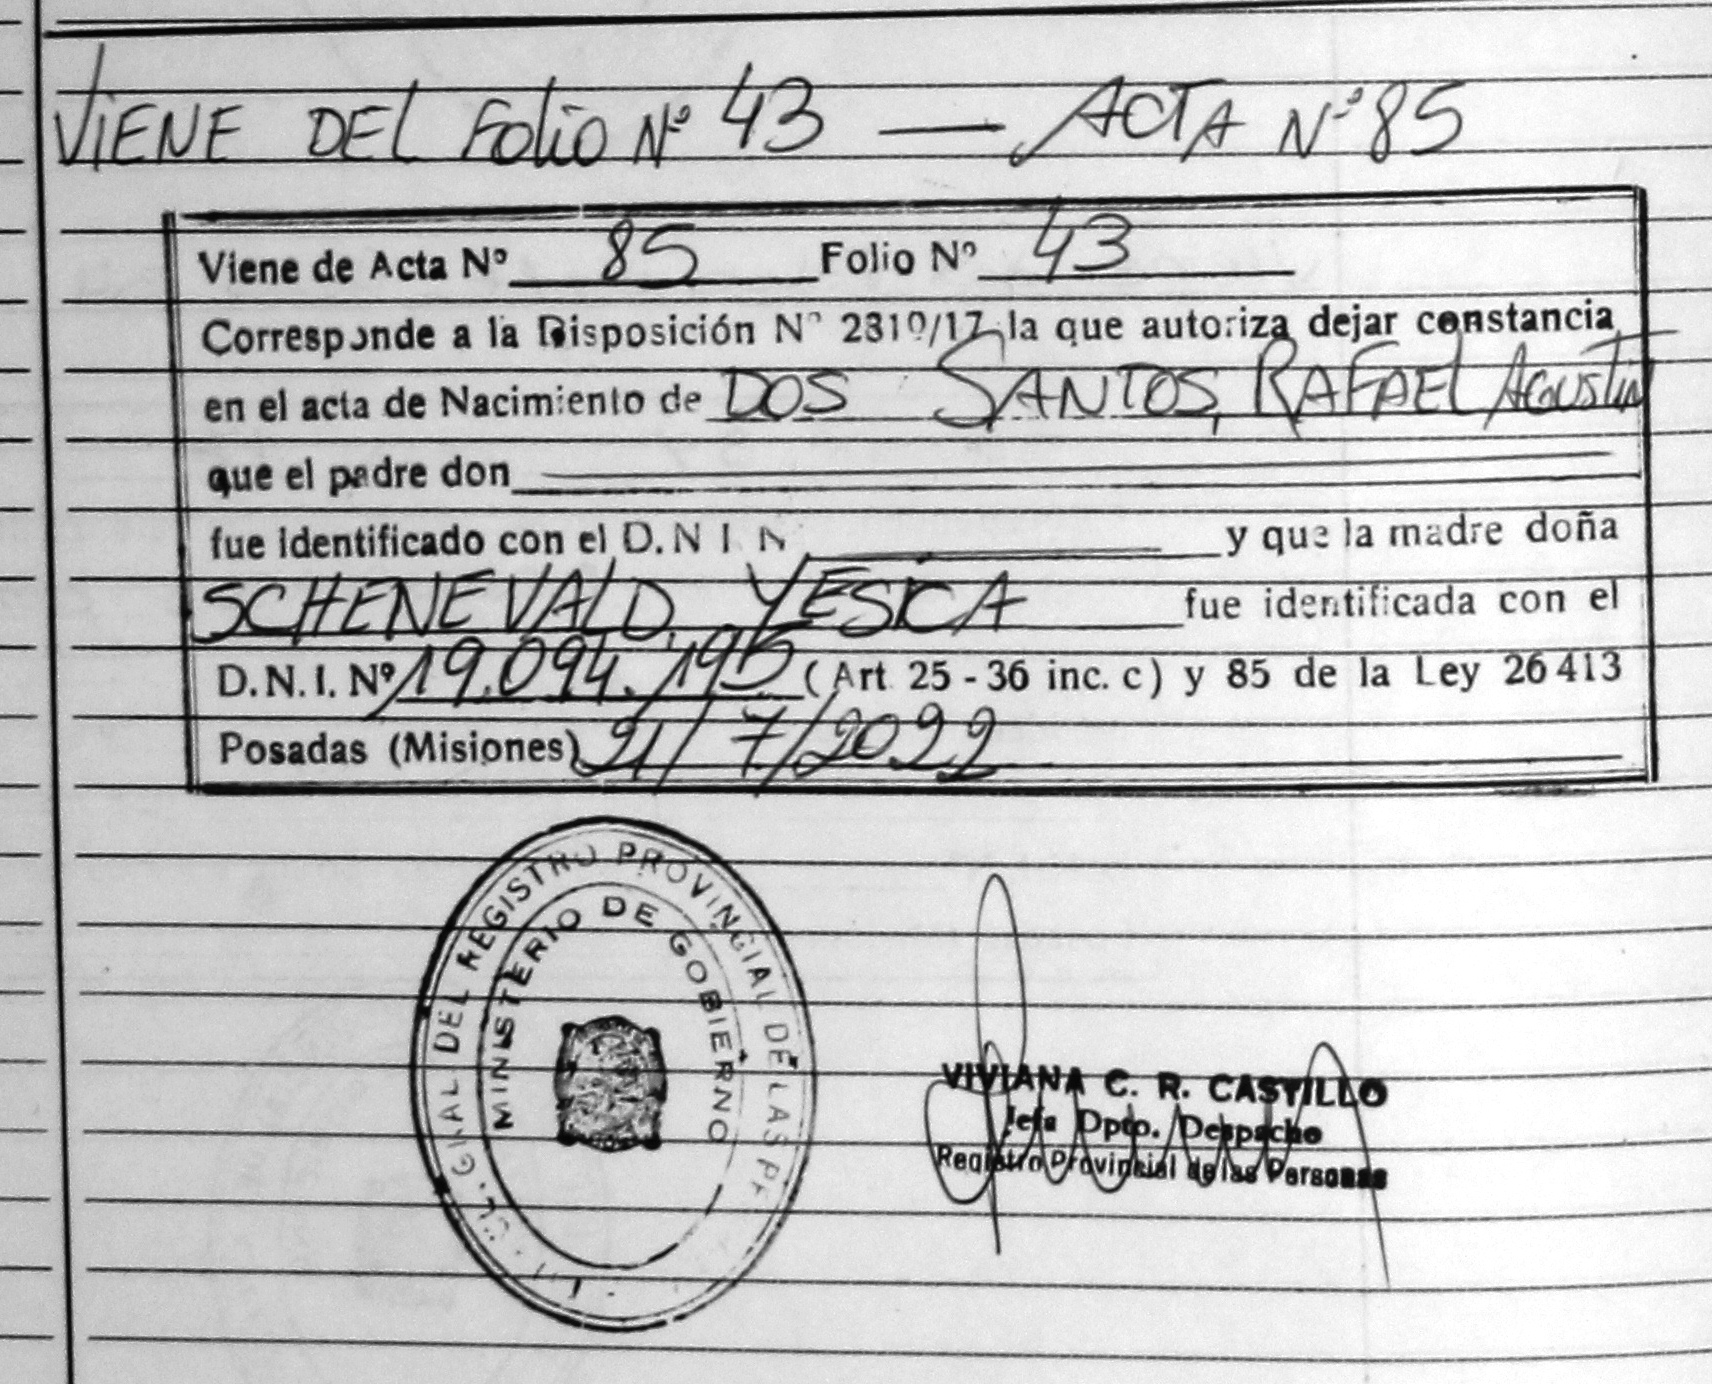 VIENE DEL FOLIO Nº 43 — ACTA Nº 85
Viene de Acta Nº 85 Folio Nº 43
Corresponde a la Disposición Nº 2310/17 la que autoriza dejar constancia
en el acta de Nacimiento de DOS SANTOS, RAFAEL AGUSTIN
que el padre don
fue identificado con el D.N.I. N y que la madre doña
SCHENEVALD, YESICA fue identificada con el
D.N.I. Nº 19.094.195 (Art. 25 - 36 inc. c) y 85 de la Ley 26413
Posadas (Misiones) 21/7/2022
GRAL DEL REGISTRO PROVINCIAL DE LAS
MINISTERIO DE GOBIERNO
VIVIANA C. R. CASTILLO
Jefa Dpto. Despacho
Registro Provincial de las Personas